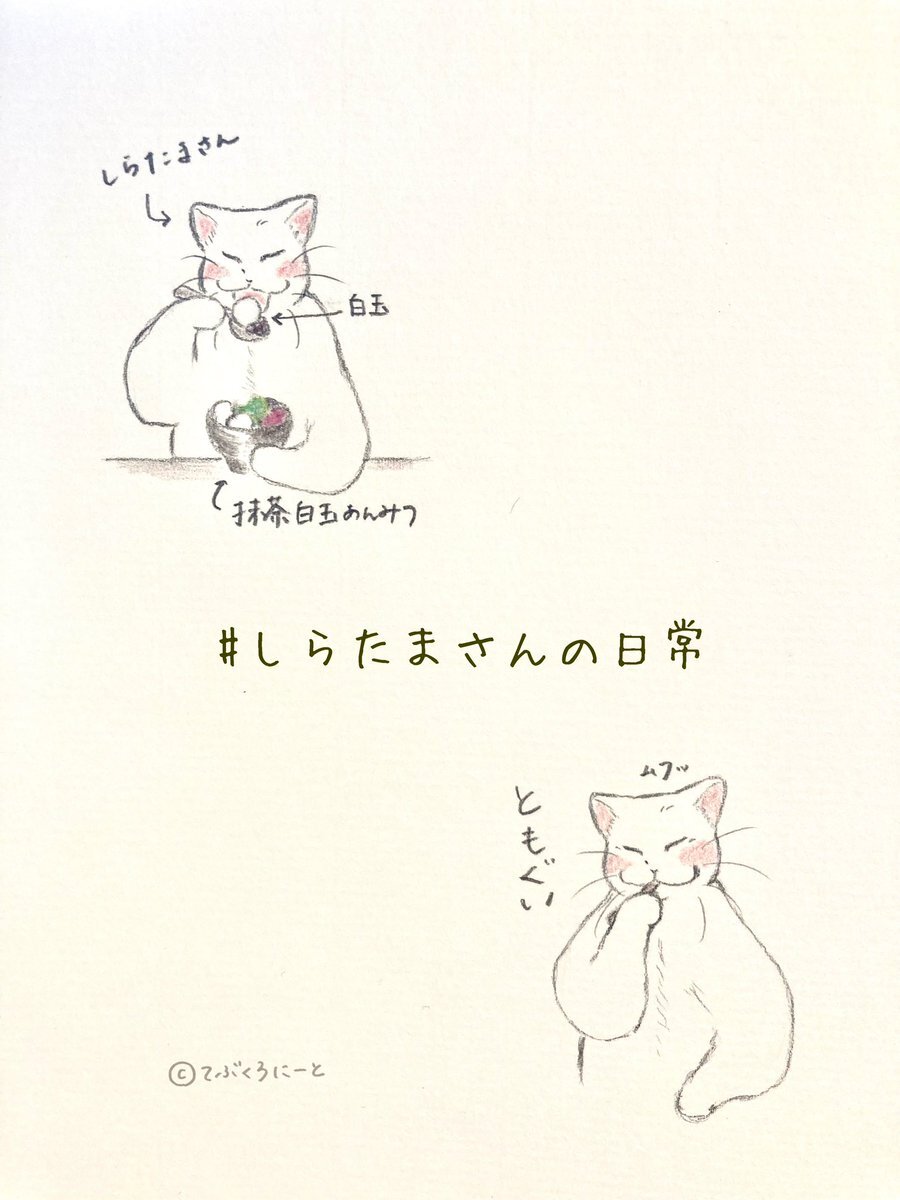 しらたまさん
白玉
抹茶白玉あんみつ
#しらたまさんの日常
ムフッ
ともぐい
©てぶくろにーと